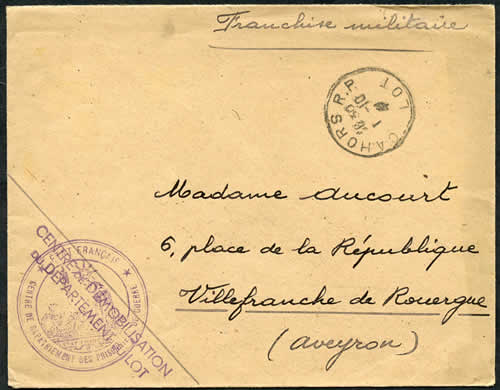 Franchise militaire
CAHORS R.P. LOT
1 -10
Madame Aucourt
6, place de la République
Villefranche de Rouergue
(Aveyron)
CENTRE DE DEMOBILISATION
DU DEPARTEMENT LOT
FRANÇAIS
CENTRE DE RAPATRIEMENT DES PRISONNIERS